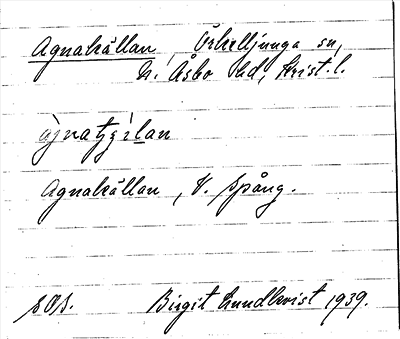 Agnakällan, Örkelljunga sn,
N. Åsbo hd, Krist. l.
Agnakällan, V. Spång.
Birgit Lundkvist 1939.